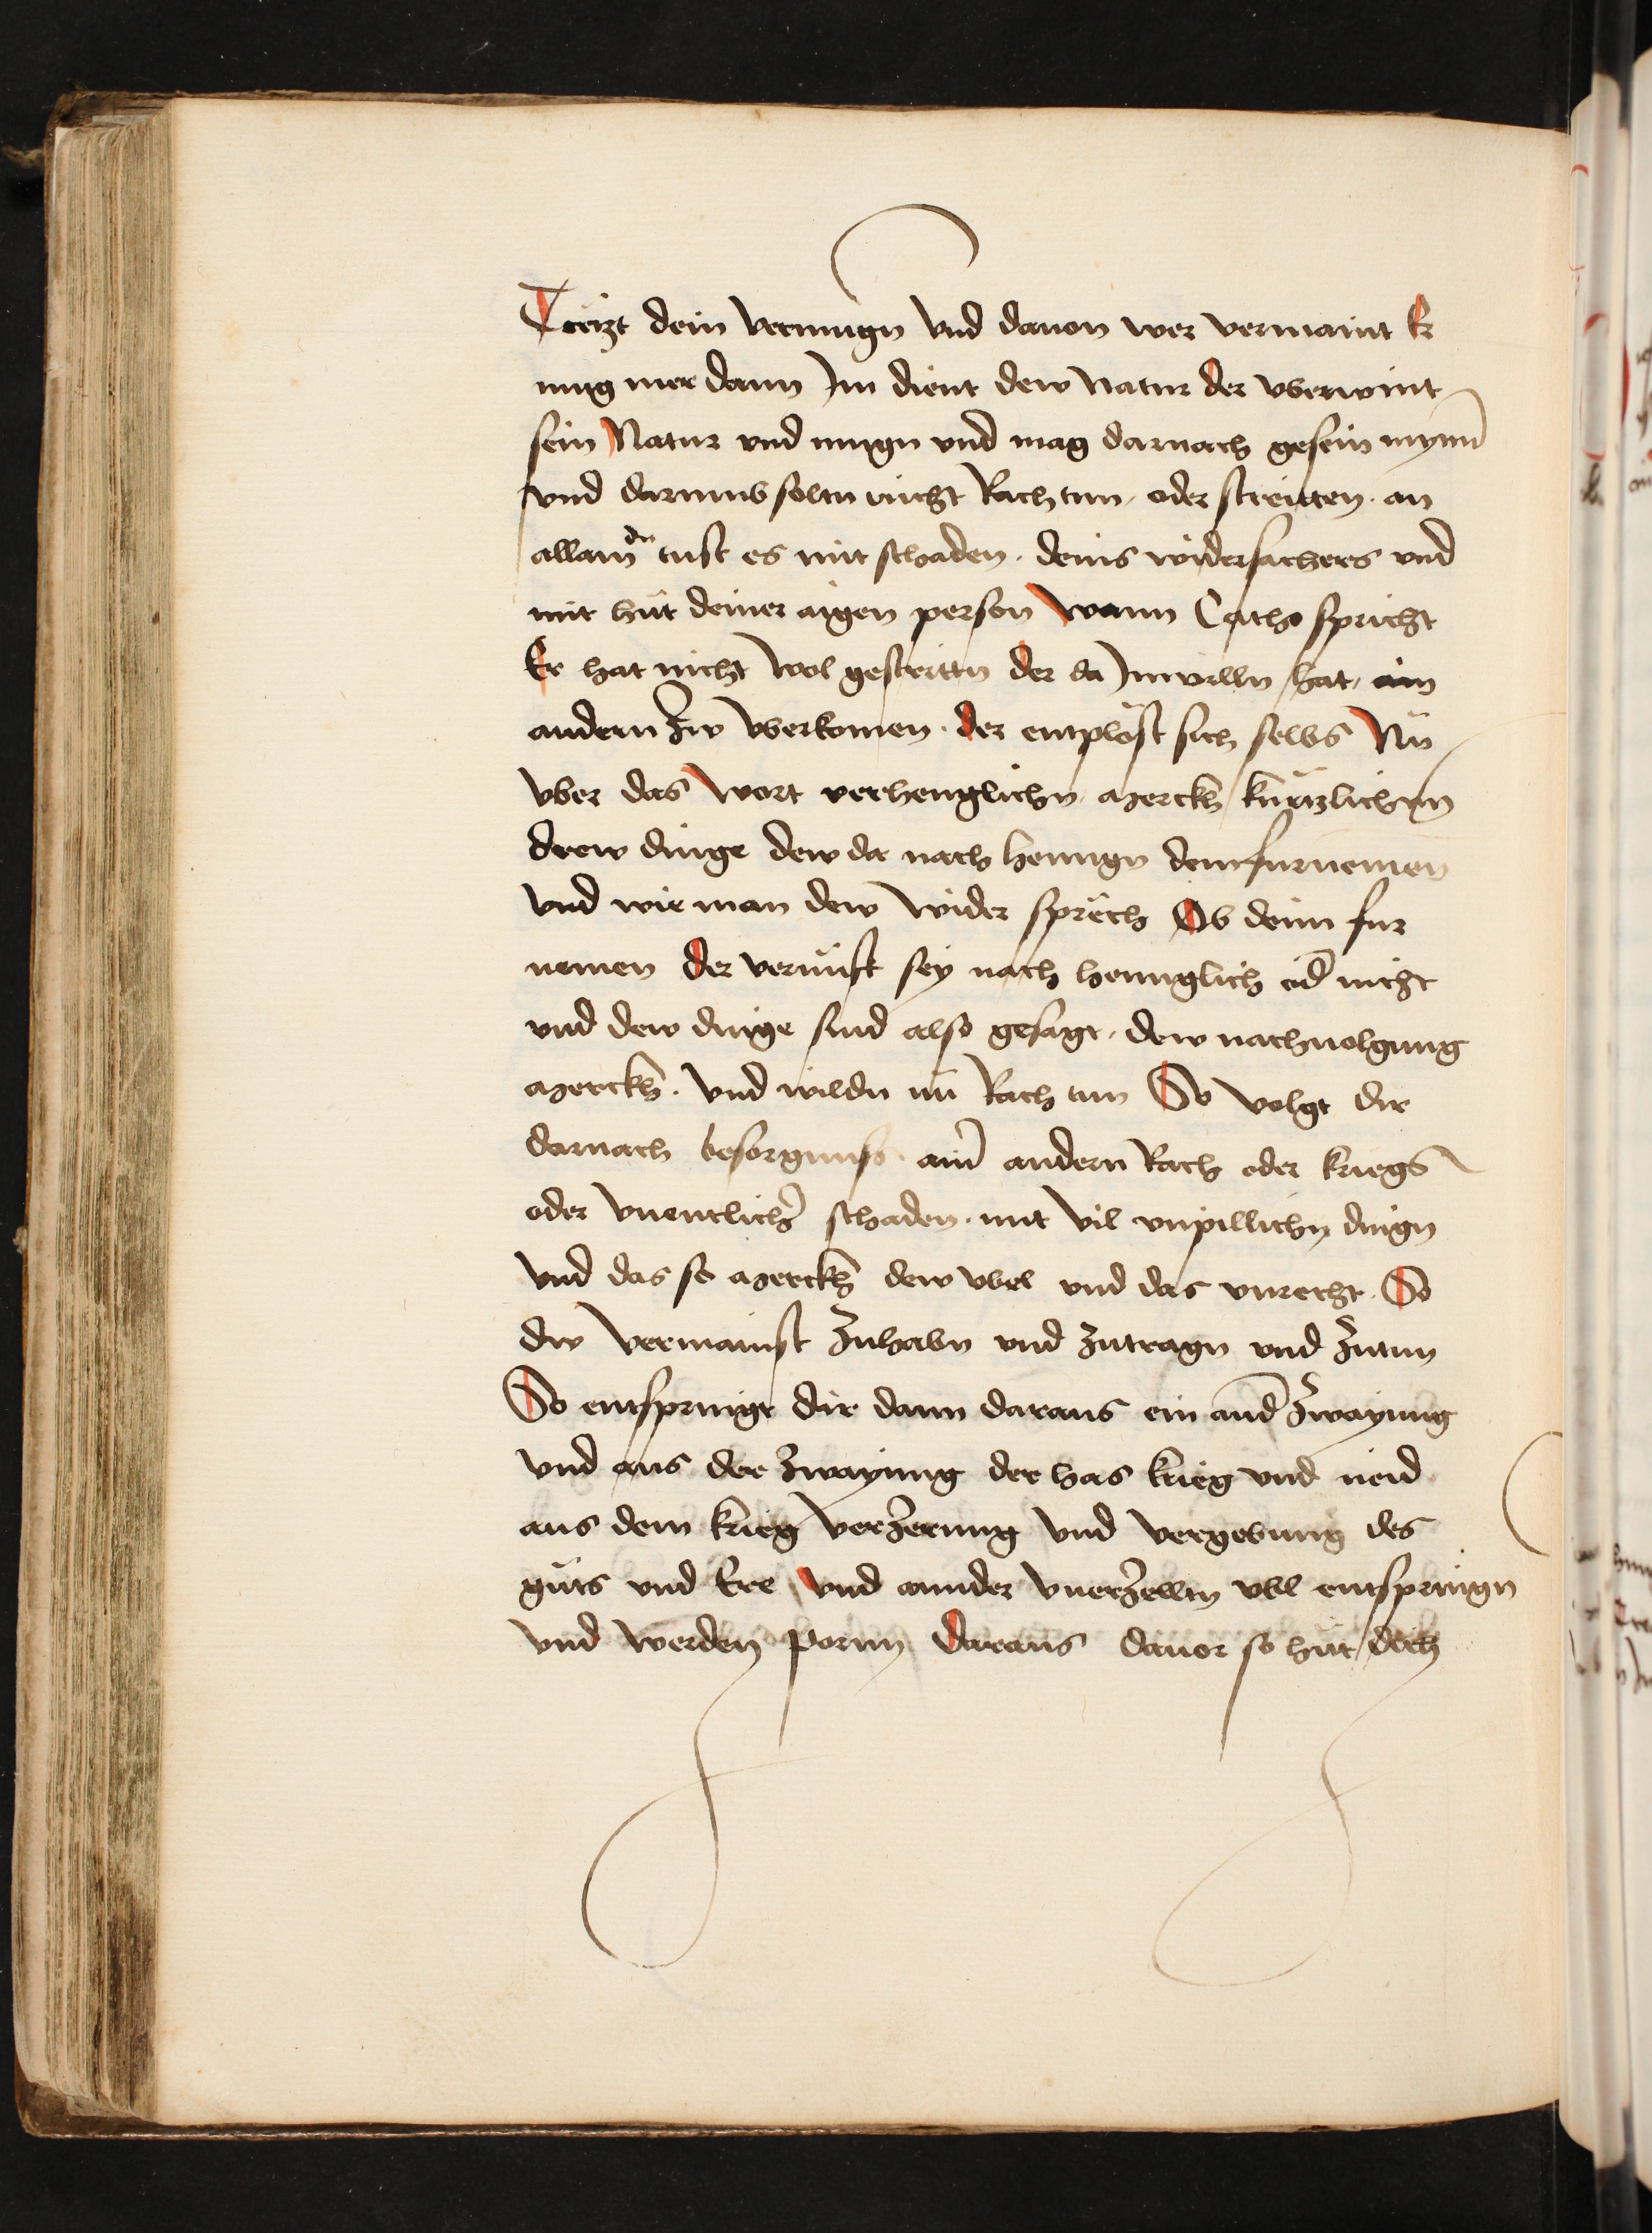 Treizt dein vermugn vnd dauon wer vermaint Er
mug mer dann Jm dient dew Natur der vberwint
sein Natur vnd mugn vnd mag darnach gesein mynn̄
vnd darumb soltu nicht Rach tun oder streitten an
allain du tust es mit schaden deins widersachers vnd
mit hut deiner aigen person Wann Catho spricht
Er hat nicht wol gestrittn der da Jnwilln hat ain
andern zw vberkomen der entplöst sich selbs Nu
vber das wort verhenglichn merckh kurtzlichen
drew dinge dew da nach henngn dem furnemen
vnd wie man dew wider sprech Ob deim fur
nemen der vernufft sey nach henngklich od̄ nicht
vnd dew dinge sind also gesagt dew nachuolgung
merckh vnd wildu nū Rach tun So volgt dir
darnach besorgnuss ain̄ andern Rach oder kriegs
oder vnentlich̄ schaden mit vil vnpillichn dingn
vnd das so merckh dew vbel vnd das vnrecht So
dw vermainst zuhabn vnd zutragn vnd zutun
So entspringt dir dann daraus ein and̄ zwayung
vnd aus der zwayung der has krieg vnd neid
aus dem krieg verzerung vnd vergebung des
guts vnd Ere vnd annder vnerzellm vbl entspringn
vnd werden pornn daraus dauor so hut dich